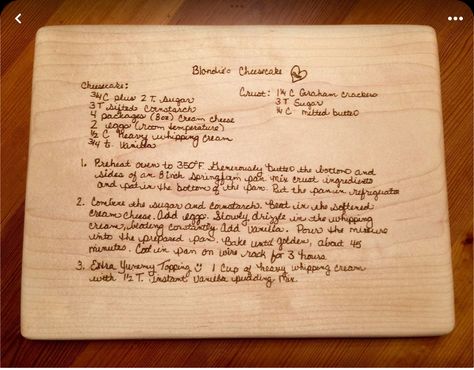 Blondie's Cheesecake
Cheesecake:
3/4 C plus 2 T. Sugar
3 T sifted Cornstarch
4 packages (8oz) Cream cheese
2 eggs (room temperature)
1/2 C Heavy whipping cream
3/4 t. Vanilla
Crust: 1 1/4 C Graham crackers
3 T Sugar
1/4 C melted butter
1. Preheat oven to 350°F. Generously butter the bottom and
sides of an 8 inch Springform pan. Mix crust ingredients
and pat in the bottom of the pan. Put the pan in refrigerator
2. Combine the sugar and cornstarch. Beat in the softened
cream cheese. Add eggs. Slowly drizzle in the whipping
cream, beating constantly. Add Vanilla. Pour the mixture
into the prepared pan. Bake until golden, about 45
minutes. Cool in pan on wire rack for 3 hours
3. Extra Yummy Topping 1 Cup of heavy whipping cream
with 1 1/2 T. instant Vanilla pudding Mix.